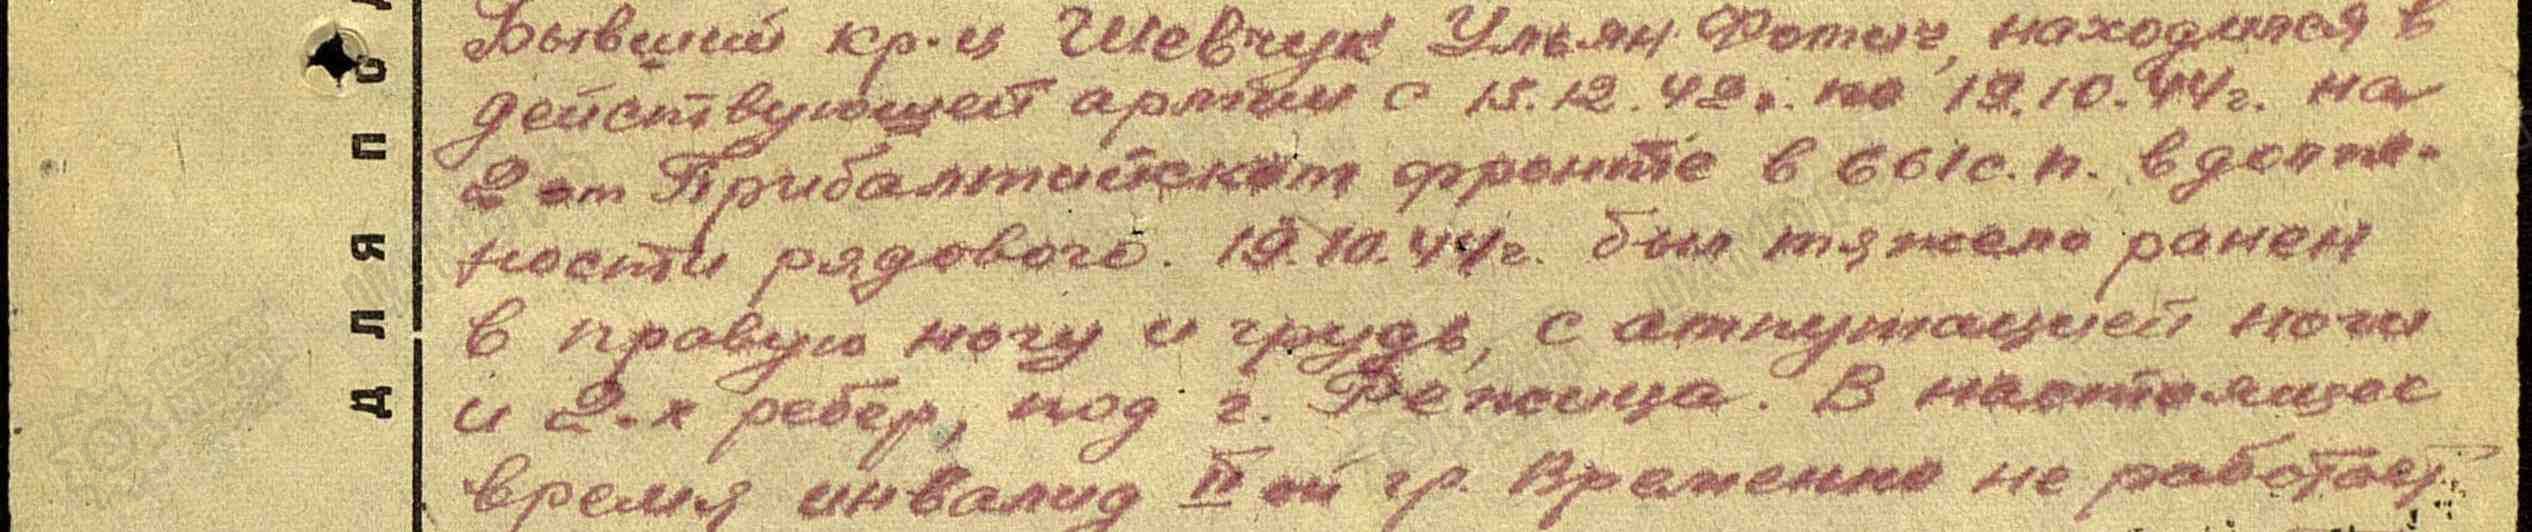 Бывший кр-ц Шевчук Ульян Фотич, находился в
действующей армии с 15.12.42г. по 19.10.44г. на
2 ом Прибалтийском фронте в 661 с.п. в долж-
ности рядового. 19.10.44г. был тяжело ранен
в правую ногу и грудь, с ампутацией ноги
и 2-х ребер, под г. Режица. В настоящее
время инвалид II ой гр. Временно не работает.
ДЛЯ П